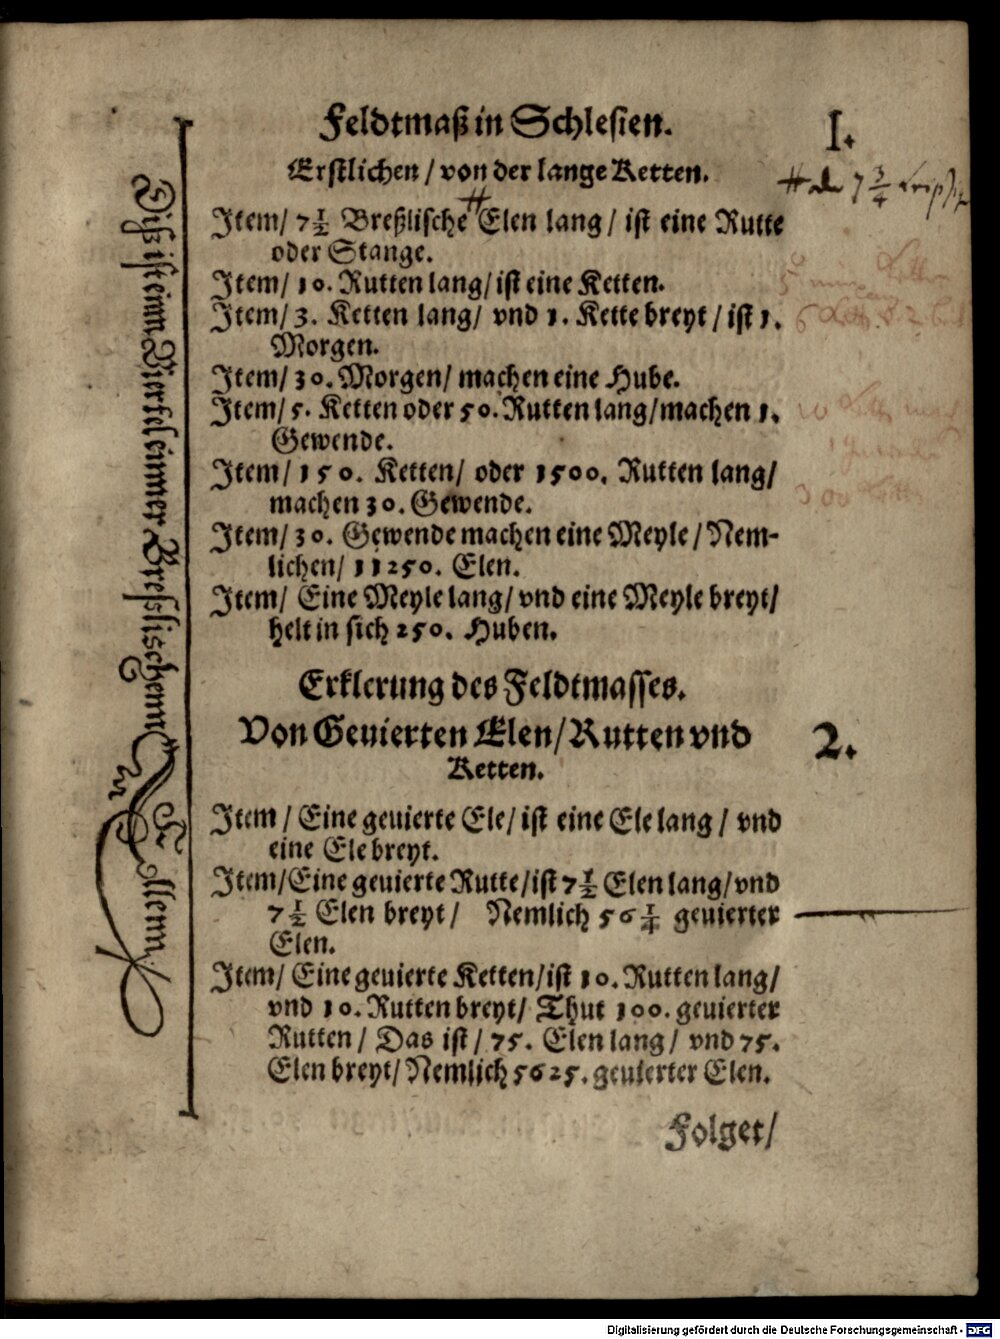 Feldtmaß in Schlesien.
I.
Erstlichen / von der lange Ketten.
7 3/4
Item / 7 1/2 Breßlische # Elen lang / ist eine Rutte
oder Stange.
Item / 10. Rutten lang / ist eine Ketten.
Item / 3. Ketten lang / vnd 1. Kette breyt / ist 1.
Morgen.
Item / 30. Morgen / machen eine Hube.
Item / 5. Ketten oder 50. Rutten lang / machen 1.
Gewende.
Item / 150. Ketten / oder 1500. Rutten lang /
machen 30. Gewende.
Item / 30. Gewende machen eine Meyle / Nem-
lichen / 11250. Elen.
Item / Eine Meyle lang / vnd eine Meyle breyt /
helt in sich 250. Huben.
Erklerung des Feldtmasses.
Von Geuierten Elen / Rutten vnd
Ketten.
2.
Item / Eine geuierte Ele / ist eine Ele lang / vnd
eine Ele breyt.
Item / Eine geuierte Rutte / ist 7 1/2 Elen lang / vnd
7 1/2 Elen breyt / Nemlich 56 1/4 geuierter
Elen.
Item / Eine geuierte Ketten / ist 10. Rutten lang /
vnd 10. Rutten breyt / Thut 100. geuierter
Rutten / Das ist / 75. Elen lang / vnd 75.
Elen breyt / Nemlich 5625. geuierter Elen.
Folget /
Diß ist einn Viertel einner Bresslischenn Ellenn
Digitalisierung gefördert durch die Deutsche Forschungsgemeinschaft - DFG